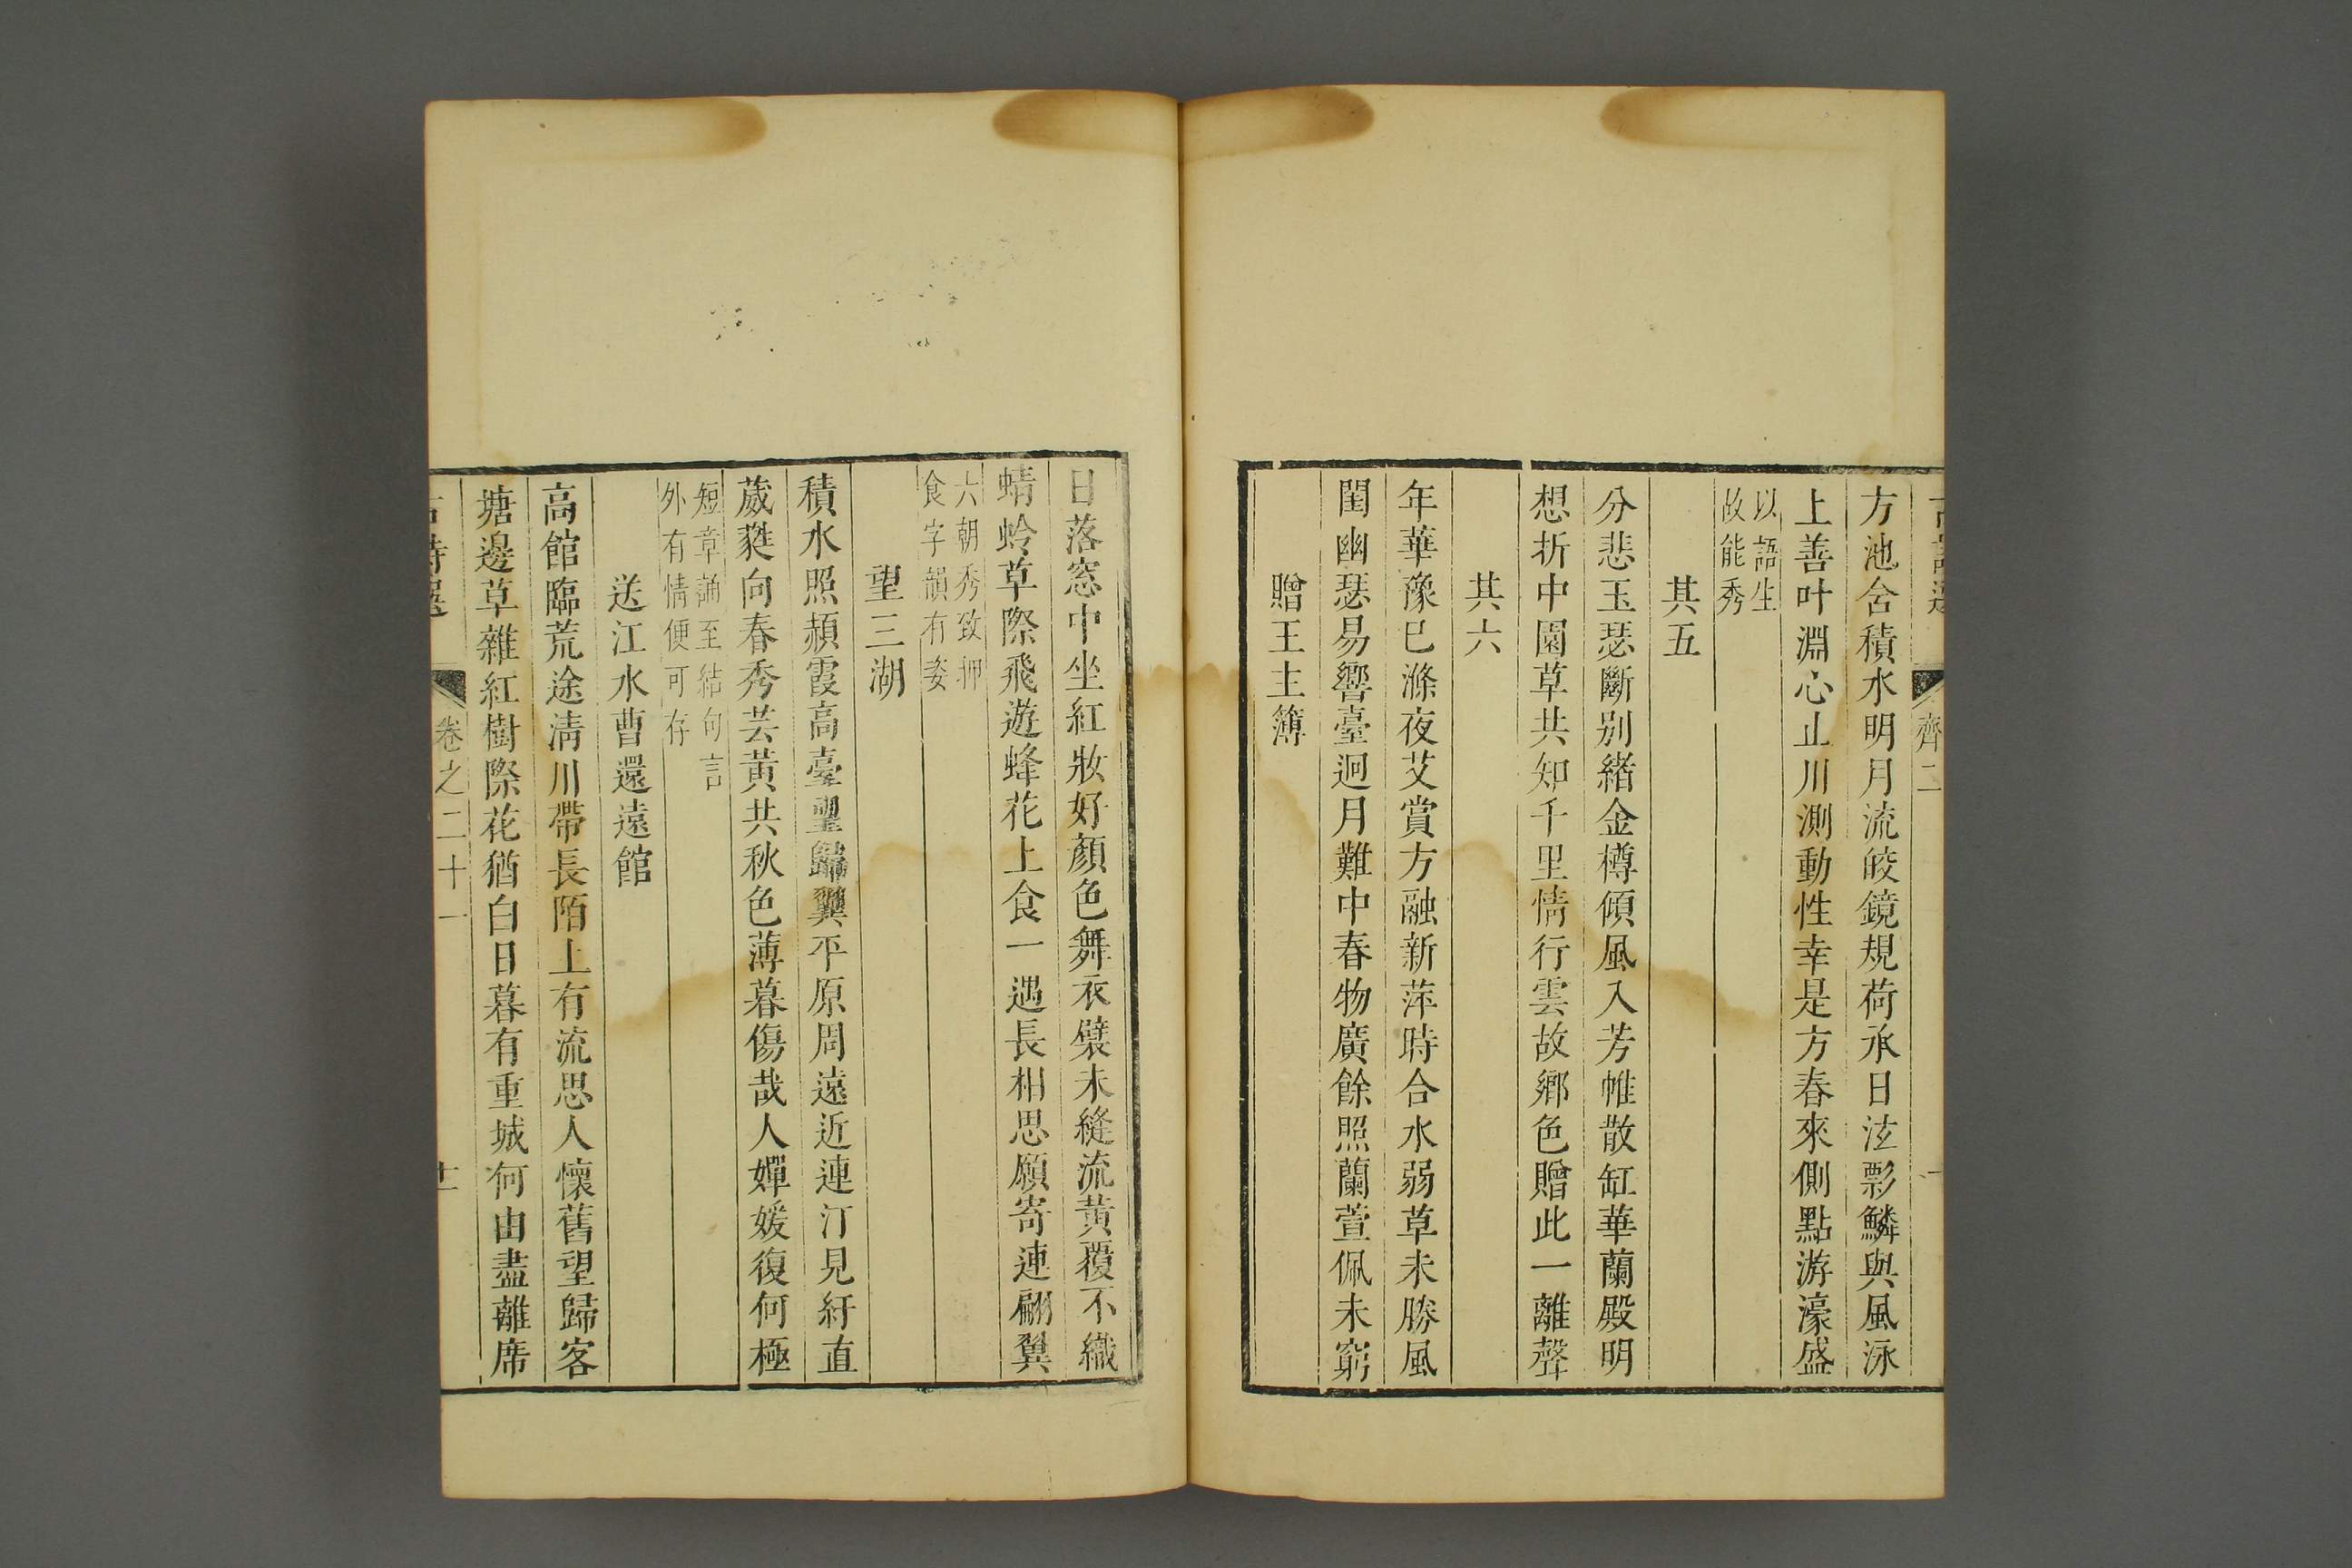 齊二
方池含積水明月流皎鏡規荷承日泫彯鱗與風泳
上善叶淵心止川測動性幸是方春來側點游濠盛
以語生
故能秀
其五
分悲玉瑟斷别緒金樽傾風入芳帷散缸華蘭殿明
想折中園草共知千里情行雲故鄉色贈此一離聲
其六
年華豫已滌夜艾賞方融新萍時合水弱草未勝風
閨幽瑟易響臺迥月難中春物廣餘照蘭萱佩未窮
贈王主簿
日落窓中坐紅妝好顏色舞衣襞未縫流黃覆不織
蜻蛉草際飛遊蜂花上食一遇長相思願寄連翩翼
六朝秀致押
食字韻有姿
望三湖
積水照赬霞高臺望歸翼平原周遠近連汀見紆直
葳蕤向春秀芸黃共秋色薄暮傷哉人嬋媛復何極
短章誦至結句言
外有情便可存
送江水曹還遠館
高館臨荒途清川帶長陌上有流思人懷舊望歸客
塘邊草雜紅樹際花猶白日暮有重城何由盡離席
卷之二十一